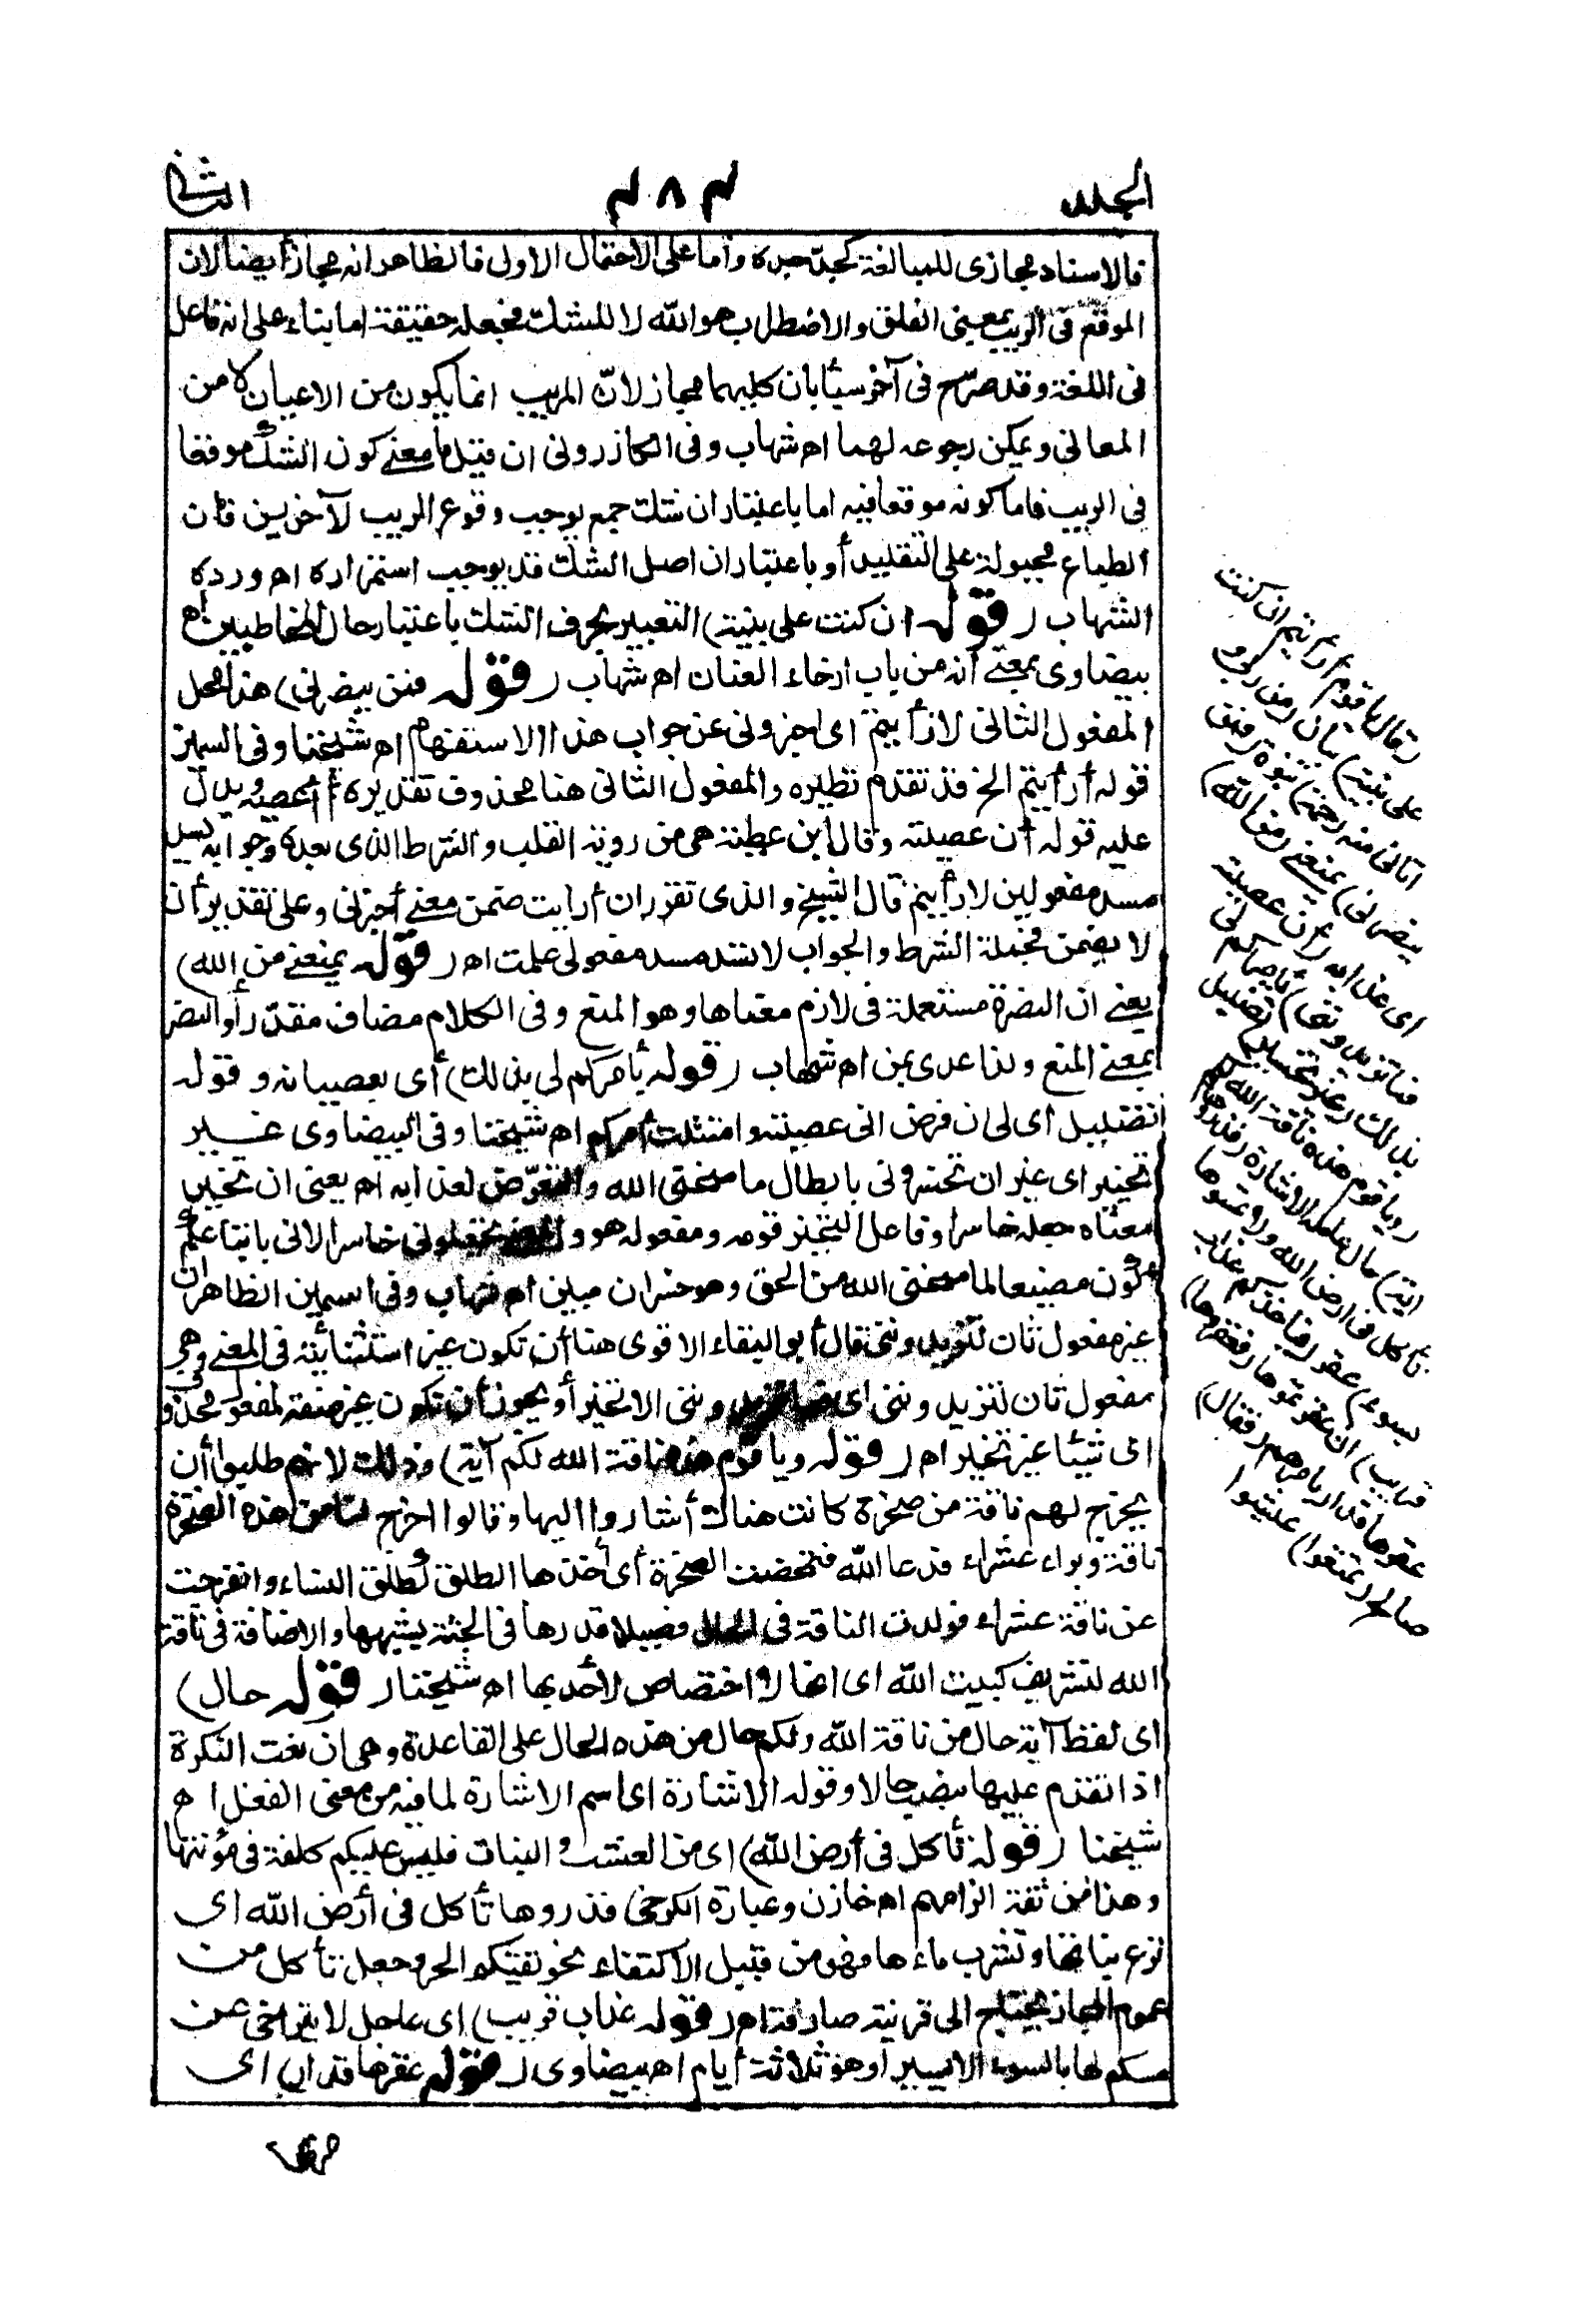 الجلد ٣٨٣ الثاني
فالاسناد مجازى للمبالغة كجدّ جده وأما على الاحتمال الاولى فالظاهر انه مجاز أيضا لان
الموقع فى الريب بمعنى القلق والاضطراب هو الله لا للشك فجعله حقيقة اما بناء على انه فاعل
فى اللغة وقد صرّح فى آخر سبأ بان كليهما مجاز لانّ المريب انما يكون من الاعيان لا من
المعانى ويمكن رجوعه لهما اه شهاب وفى الكازرونى ان قيل ما معنى كون الشك موقعا
فى الريب فاما كونه موقعا فيه اما باعتبار ان شك جمع يوجب وقوع الريب لآخرين فان
الطباع مجبولة على التقليد أو باعتبار ان اصل الشك قد يوجب استمراره اه ورده
الشهاب (قوله ان كنت على بينة) التعبير بحرف الشك باعتبار حال المخاطبين اه
بيضاوى بمعنى أنه من باب ارخاء العنان اه شهاب (قوله فمن ينصرنى) هذا محل
المفعول الثانى لارأيتم اى اخبرونى عن جواب هذا الاستفهام اه شيخنا وفى السمين
قوله أرأيتم الخ قد تقدم نظيره والمفعول الثانى هنا محذوف تقديره أأعصيه ويدل
عليه قوله أن عصيته وقال ابن عطية هى من روية القلب والشرط الذى بعده وجوابه يسد
مسد مفعولين لارأيتم قال الشيخ والذى تقرر ان أرايت ضمن معنى أخبرنى وعلى تقدير أن
لا يضمن فجملة الشرط والجواب لا تسد مسد مفعولى علمت اه (قوله يمنعنى من الله)
يعنى ان النصرة مستعملة فى لازم معناها وهو المنع وفى الكلام مضاف مقدّر أو النصر
بمعنى المنع ولذا عدى بمن اه شهاب (قوله بأمركم لى بذلك) أى بعصيانه وقوله
تضليل اى لى ان فرض انى عصيته وامتثلت أمركم اه شيخنا وفى البيضاوى غير
تخسير اى غير ان تخسرونى بابطال ما منحنى الله والتعرّض لعذابه اه يعنى ان تخسير
معناه جعله خاسرا وفاعل التخسير قومه ومفعوله هو والمعنى تجعلونى خاسرا لانى باتباعكم
أكون مضيعا لما منحنى الله من الحق وهو خسران مبين اه شهاب وفى السمين الظاهر ان
غير مفعول ثان لتزيدوننى قال أبو البقاء الاقوى هنا أن تكون غير استثنائية فى المعنى وهى
مفعول ثان لتزيدوننى اى فما تزيدوننى الا تخسيرا ويجوز أن تكون غير صفة لمفعول محذوف
اى شيئا غير تخسير اه (قوله ويا قوم هذه ناقة الله لكم آية) وذلك لانهم طلبوا أن
يخرج لهم ناقة من صخرة كانت هناك أشاروا اليها وقالوا اخرج لنا من هذه الصخرة
ناقة وبراء عشراء فدعا الله فتمخضت الصخرة أى أخذها الطلق كطلق النساء وانفرجت
عن ناقة عشراء فولدت الناقة فى الحال فصيلا قدرها فى الجثة يشبهها والاضافة فى ناقة
الله لتشريف كبيت الله اى انها لا اختصاص لأحد بها اه شيخنا (قوله حال)
اى لفظ آية حال من ناقة الله ولكم حال من هذه الحال على القاعدة وهى ان نعت النكرة
اذا تقدم عليها ينصب حالا وقوله الاشارة اى اسم الاشارة لما فيه من معنى الفعل اه
شيخنا (قوله تأكل فى أرض الله) اى من العشب والنبات فليس عليكم كلفة فى مؤنتها
وهذا من تتمة الزامهم اه خازن وعبارة الكرخى فذروها تأكل فى أرض الله اى
نزع نباتها وتشرب ماءها فهو من قبيل الاكتفاء نحو تقيكم الحر وجعل تأكل من
عموم المجاز يحتاج الى قرينة صارفة اه (قوله عذاب قريب) اى عاجل لا يتراخى عن
مسكم لها بالسوء الا يسيرا وهو ثلاثة أيام اه بيضاوى (قوله عقرها قدار) اى
(قال يا قوم أرأيتم ان كنت
على بينة) بيان (من ربى و
آتانى منه رحمة) نبوة (فمن
ينصرنى) يمنعنى (من الله)
اى عذابه (ان عصيته
فما تزيدوننى) بأمركم لى
بذلك (غير تخسير) تضليل
(ويا قوم هذه ناقة الله لكم
آية) حال عامله الاشارة (فذروها
تأكل فى ارض الله ولا تمسوها
بسوء) عقر (فيأخذكم عذاب
قريب) ان عقرتموها (فعقروها)
عقرها قدار بأمرهم (فقال)
صالح (تمتعوا) عيشوا